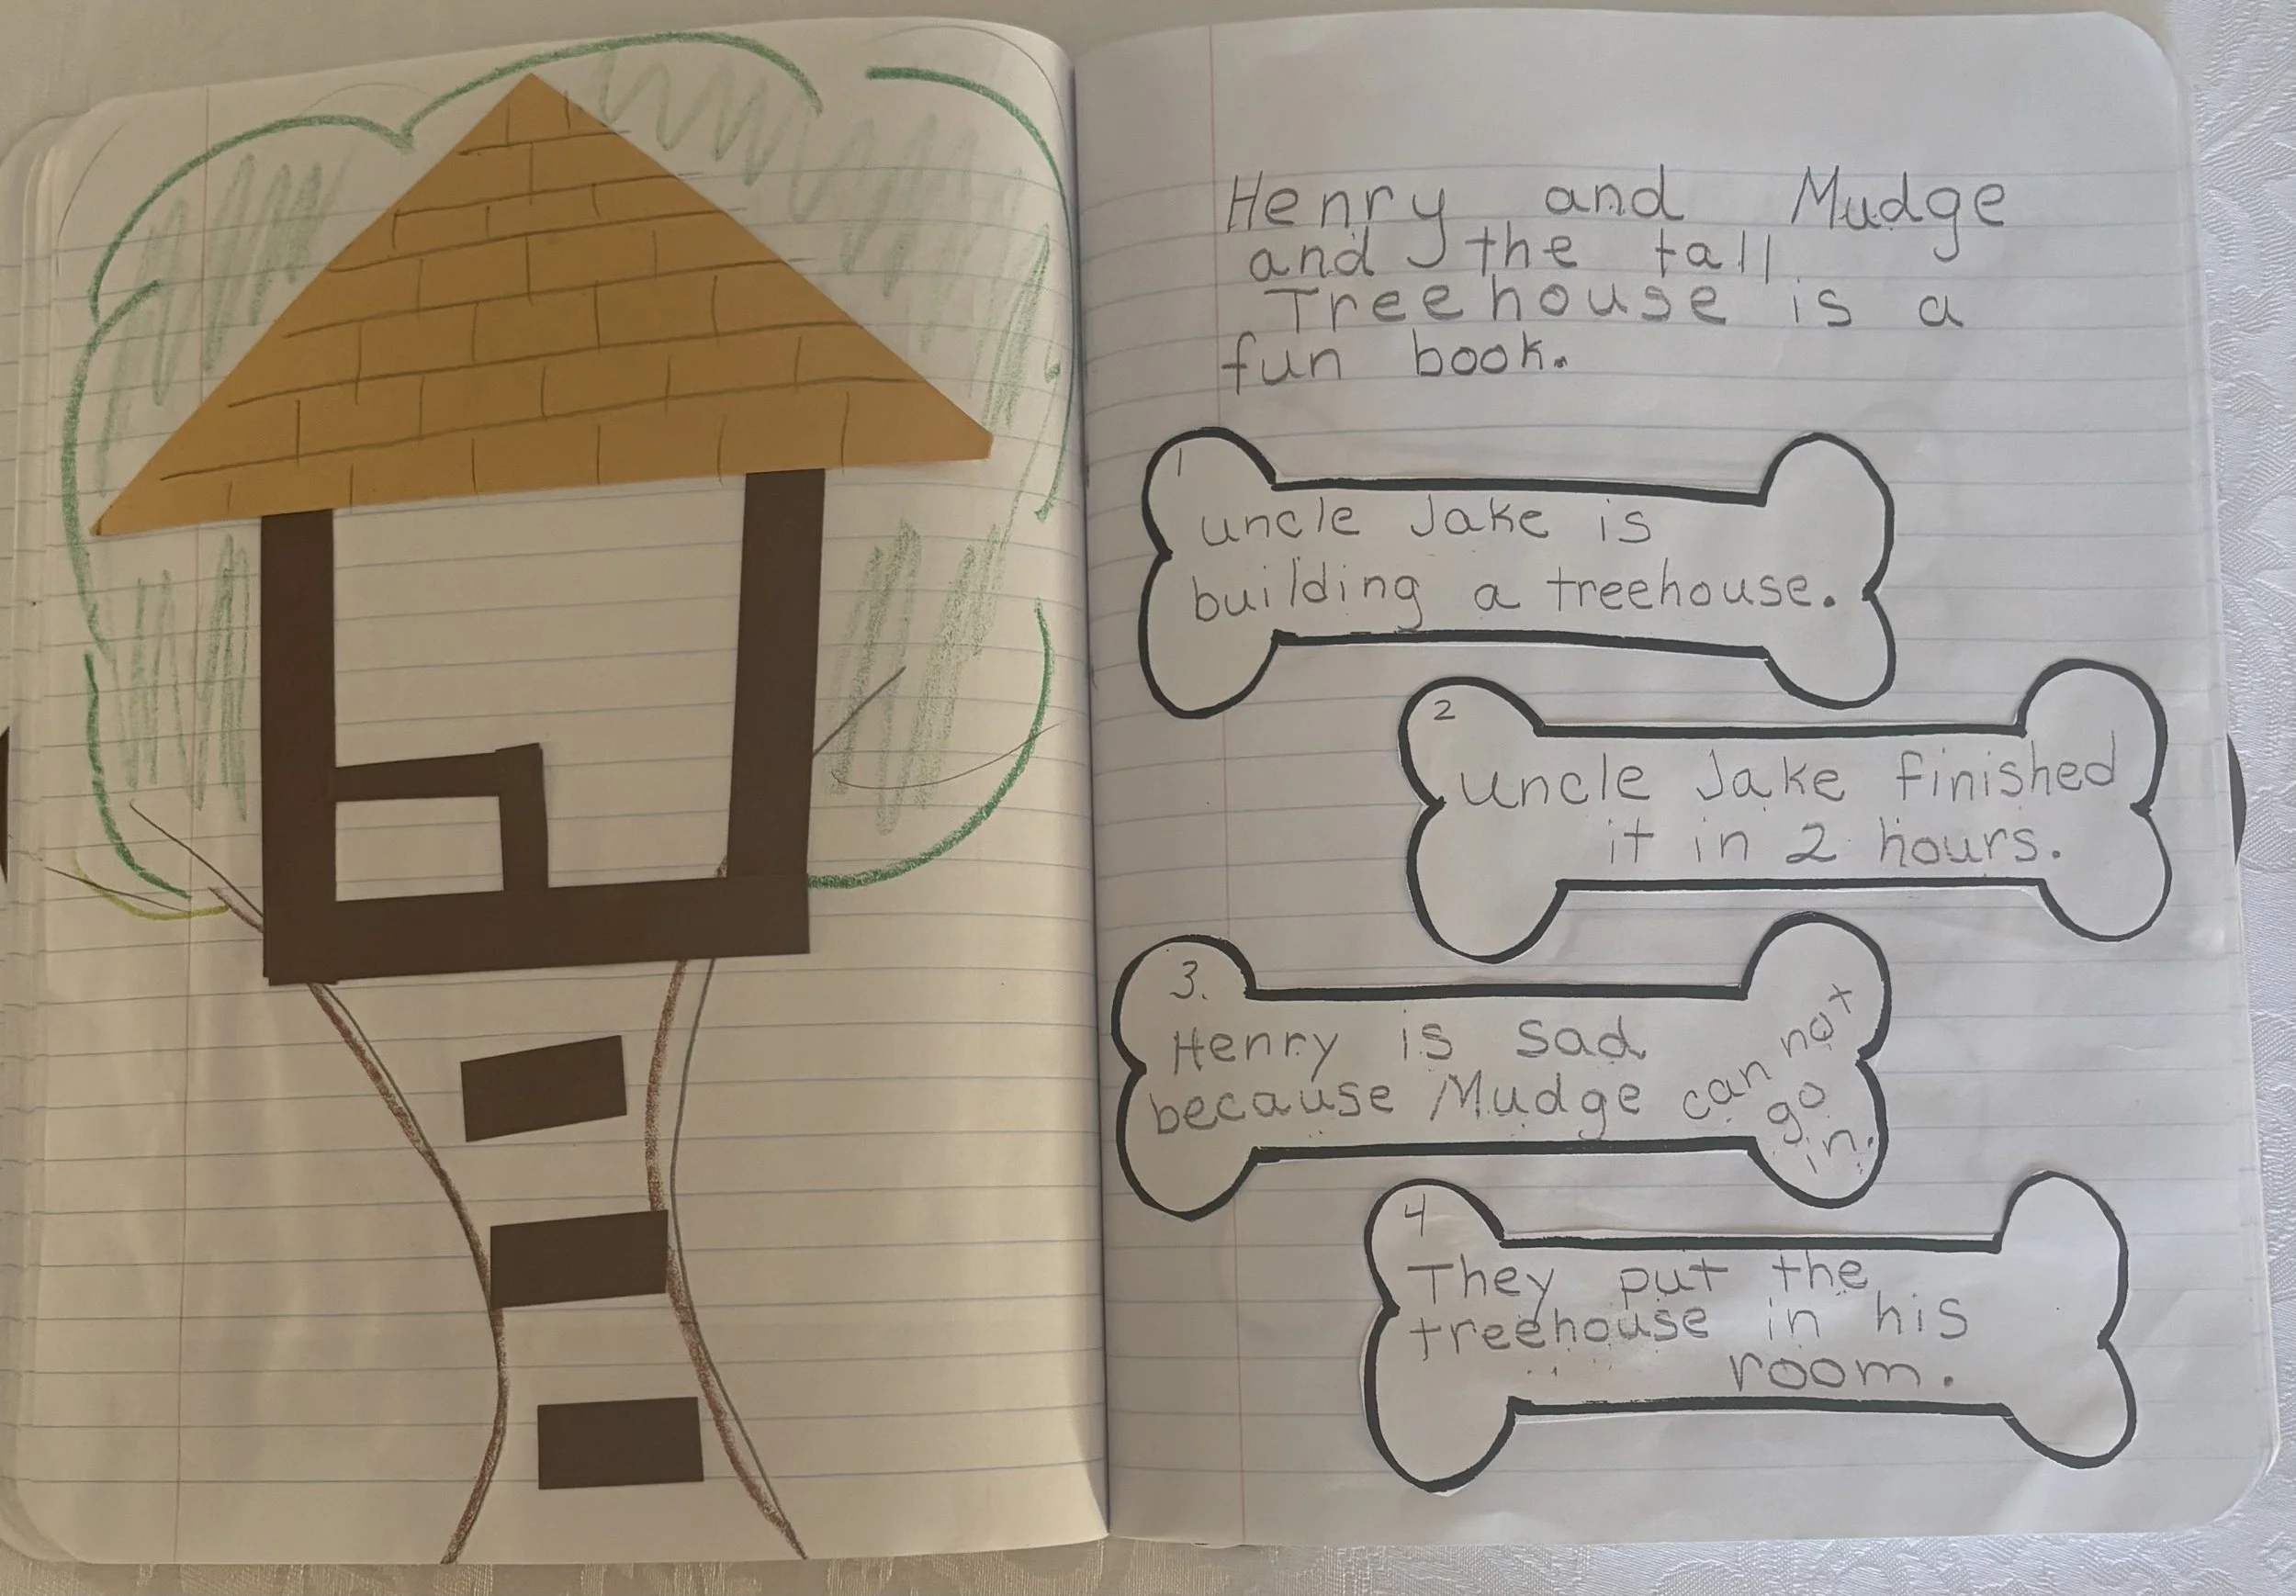 Henry and Mudge
and the tall
Treehouse is a
fun book.
1
uncle Jake is
building a treehouse.
2
uncle Jake finished
it in 2 hours.
3.
Henry is sad
because Mudge can not
go
in.
4
They put the
treehouse in his
room.